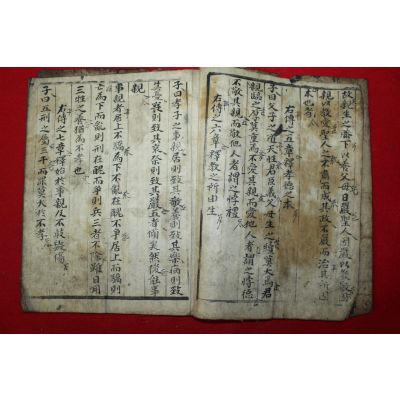 故親生之膝下以養父母日嚴聖人因嚴以敎敬因
親以敎愛聖人之敎不肅而成其政不嚴而治其所因
者本也
右傳之五章釋孝德之本
子曰父子之道天性君臣之義父母生之續莫大焉君
親臨之厚莫重焉不愛其親而愛他人者謂之悖德
不敬其親而敬他人者謂之悖禮
右傳之六章釋敎之所由生
子曰孝子之事親居則致其敬養則致其樂病則致
其憂喪則致其哀祭則致其嚴五者備矣然後能事
親
事親者居上不驕爲下不亂在醜不爭居上而驕則
亡爲下而亂則刑在醜而爭則兵三者不除雖日用
三牲之養猶爲不孝也
右傳之七章釋始於事親及不敢毁傷
子曰五刑之屬三千而罪莫大於不孝